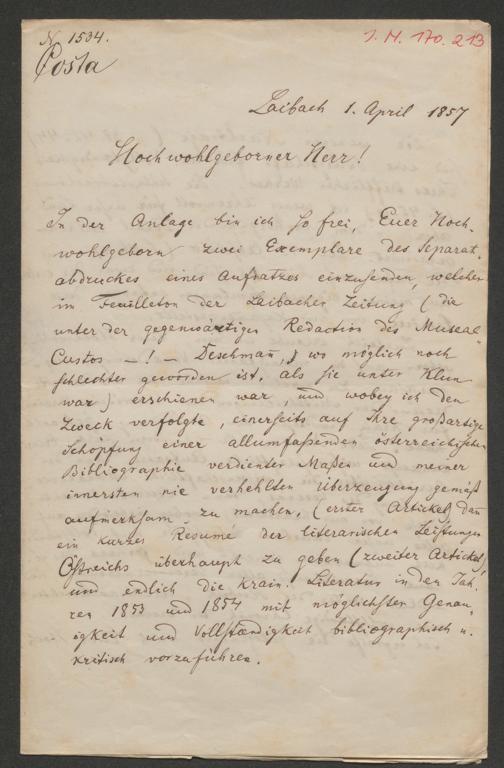 N. 1504.
Costa
J. N. 170.213
Laibach 1. April 1857
Hochwohlgeborner Herr!
In der Anlage bin ich so frei, Euer Hoch-
wohlgeborn zwei Exemplare des Separat-
abdruckes eines Aufsatzes einzusenden, welcher
im Feuilleton der Laibacher Zeitung (die
unter der gegenwärtigen Redaction des Museal-
Custos – ! – Deschmañ, wo möglich noch
schlechter geworden ist, als sie unter Klun
war) erschienen war, und wobey ich den
Zweck verfolgte, einerseits auf Ihre großartige
Schöpfung einer allumfaßenden österreichischen
Bibliographie verdienter Maßen und meiner
innersten nie verhehlten Überzeugung gemäß
aufmerksam zu machen, (erster Artickel) dan
ein kurzes Resumé der literarischen Leistungen
Östreichs überhaupt zu geben (zweiter Artickel)
und endlich die krain. Literatur in den Jah-
ren 1853 und 1854 mit möglichster Genau-
igkeit und Vollständigkeit bibliographisch u.
kritisch vorzuführen.